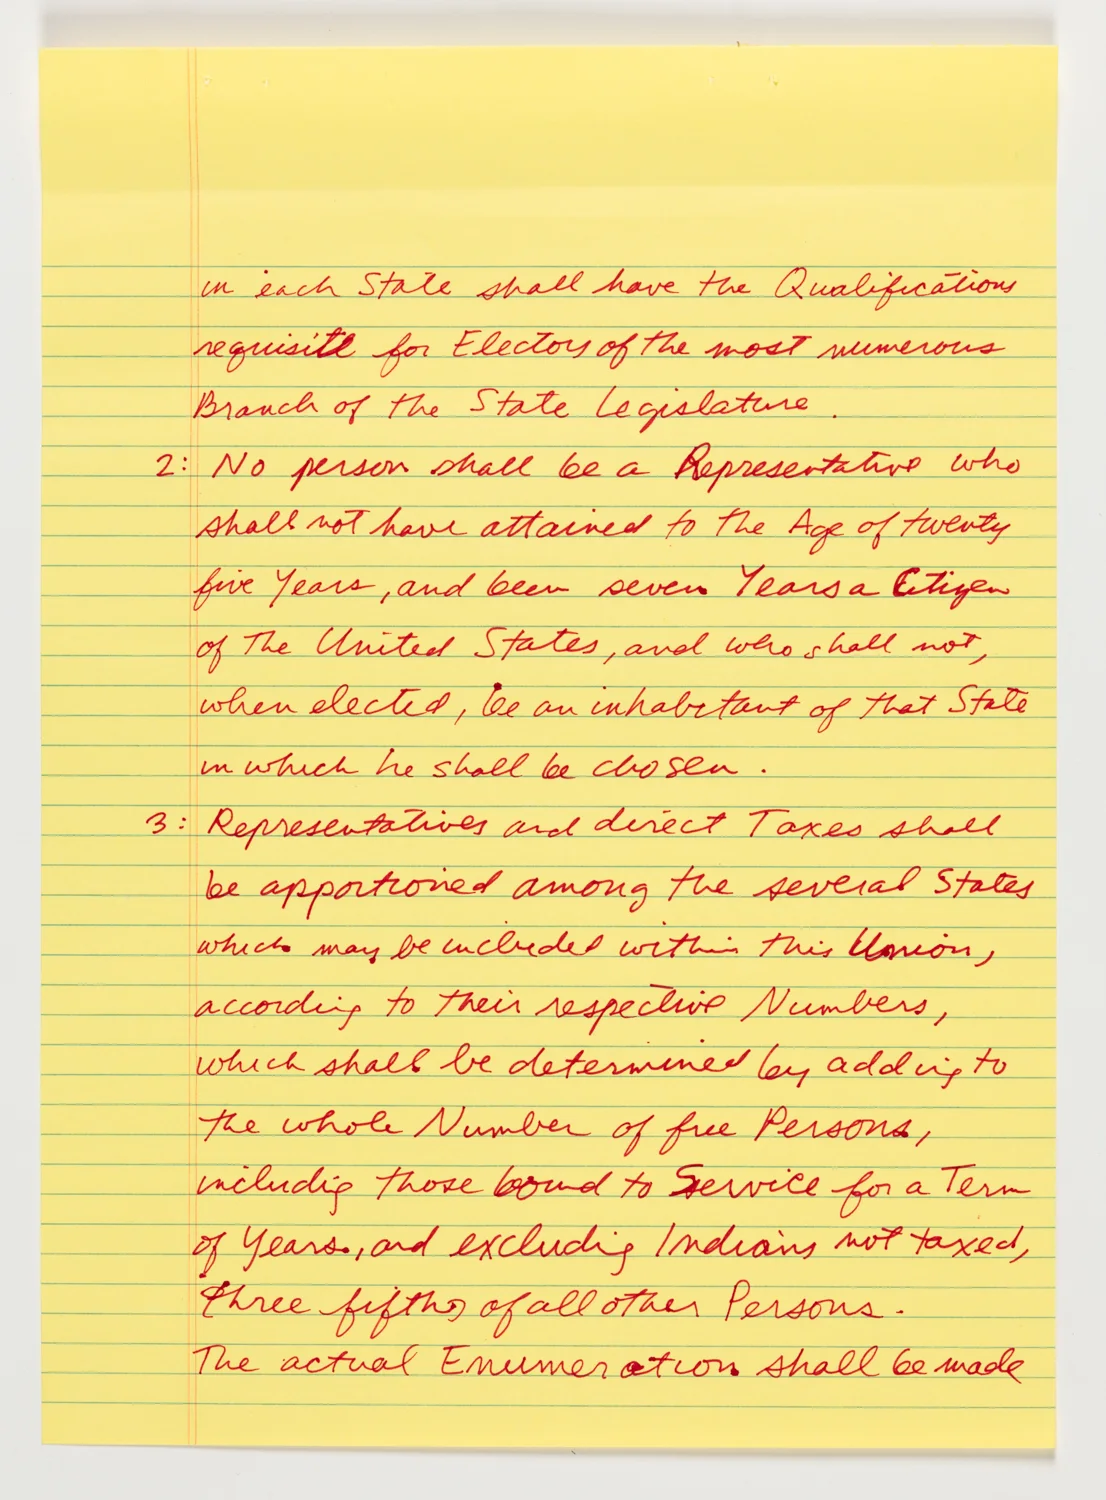 in each State shall have the Qualifications
requisite for Electors of the most numerous
Branch of the State Legislature.
2: No person shall be a Representative who
shall not have attained to the Age of twenty
five Years, and been seven Years a Citizen
of the United States, and who shall not,
when elected, be an inhabitant of that State
in which he shall be chosen.
3: Representatives and direct Taxes shall
be apportioned among the several States
which may be included within this Union,
according to their respective Numbers,
which shall be determined by adding to
the whole Number of free Persons,
including those bound to Service for a Term
of Years, and excluding Indians not taxed,
three fifths of all other Persons.
The actual Enumeration shall be made